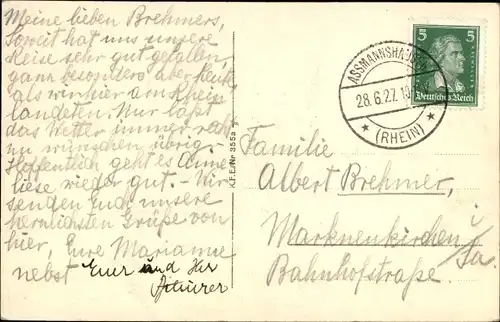 Meine lieben Brehmers,
Soweit hat uns unsere
Reise sehr gut gefallen,
ganz besonders aber heute
als wir hier am Rhein
landeten. Nur läßt
das Wetter immer recht
zu wünschen übrig.
Hoffentlich geht es Anne-
liese wieder gut. – Wir
senden Euch unsere
herzlichsten Grüße von
hier, Eure Marianne
nebst Euer und Ihr
K.F.E. Nr 355a
ASSMANNSHAUSEN
28.6.27.
(RHEIN)
5 5
Deutsches Reich
Familie
Albert Brehmer,
Markneukirchen i/Sa.
Bahnhofstraße.